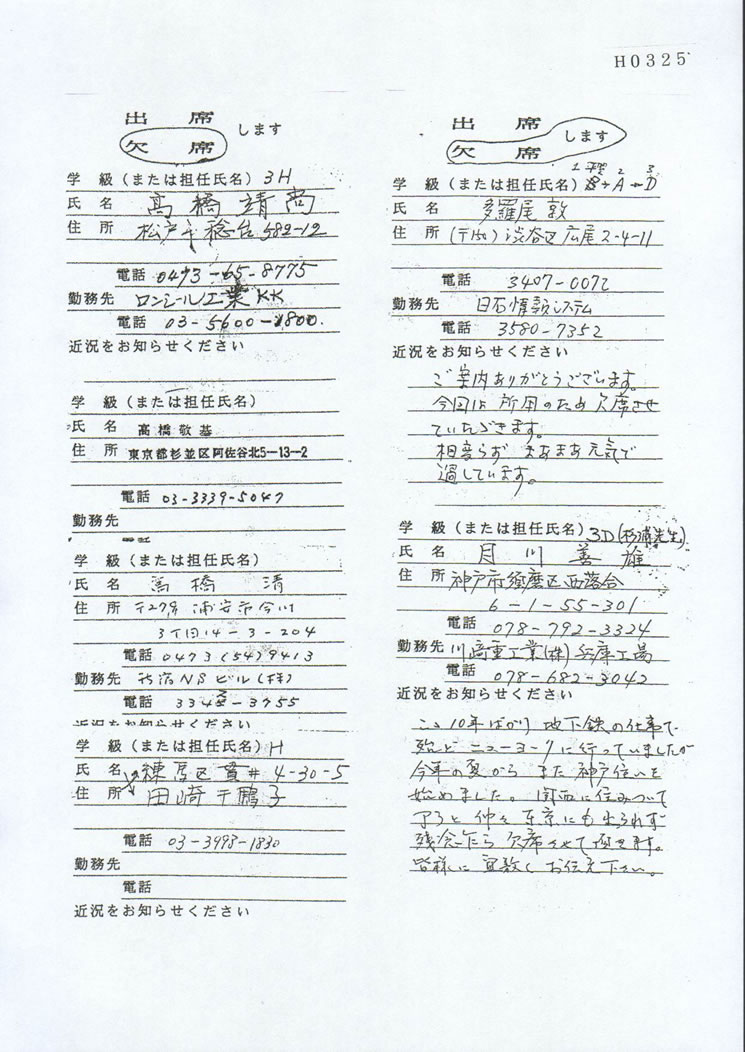 H0325
出席
欠席
します
学級(または担任氏名) 3H
氏名 高橋靖尚
住所 松戸市稔台582-12
電話 0473-65-8775
勤務先 ロンシール工業KK
電話 03-5600-1800.
近況をお知らせください
学級(または担任氏名)
氏名 高橋敬基
住所 東京都杉並区阿佐谷北5-13-2
電話 03-3339-5047
勤務先
学級(または担任氏名)
氏名 高橋 清
住所 〒279 浦安市今川
3丁目14-3-204
電話 0473(54)9413
勤務先 新宿NSビル
電話 3345-3755
近況をお知らせください
学級(または担任氏名) H
氏名 練馬区貫井4-30-5
住所 田崎千鶴子
電話 03-3998-1830
勤務先
電話
近況をお知らせください
出席
欠席
します
学級(または担任氏名) B+A+D
氏名 多羅尾敦
住所 (〒150)渋谷区広尾2-4-11
電話 3407-0072
勤務先 日石情報システム
電話 3580-7352
近況をお知らせください
ご案内ありがとうございます。
今回は所用のため欠席させ
ていただきます。
相変らず まあまあ元気で
過しています。
学級(または担任氏名) 3D(杉浦先生)
氏名 月川善雄
住所 神戸府須磨区西落合
6-1-55-301
電話 078-792-3324
勤務先 川崎重工業(株)兵庫工場
電話 078-682-3042
近況をお知らせください
ここ10年ばかり 地下鉄の仕事で
殆どニューヨークに行っていましたが
今年の夏から また神戸住いを
始めました。関西に住みついて
仲々東京にも出られず
残念乍ら欠席させて頂きます。
皆様に宜敷くお伝え下さい。